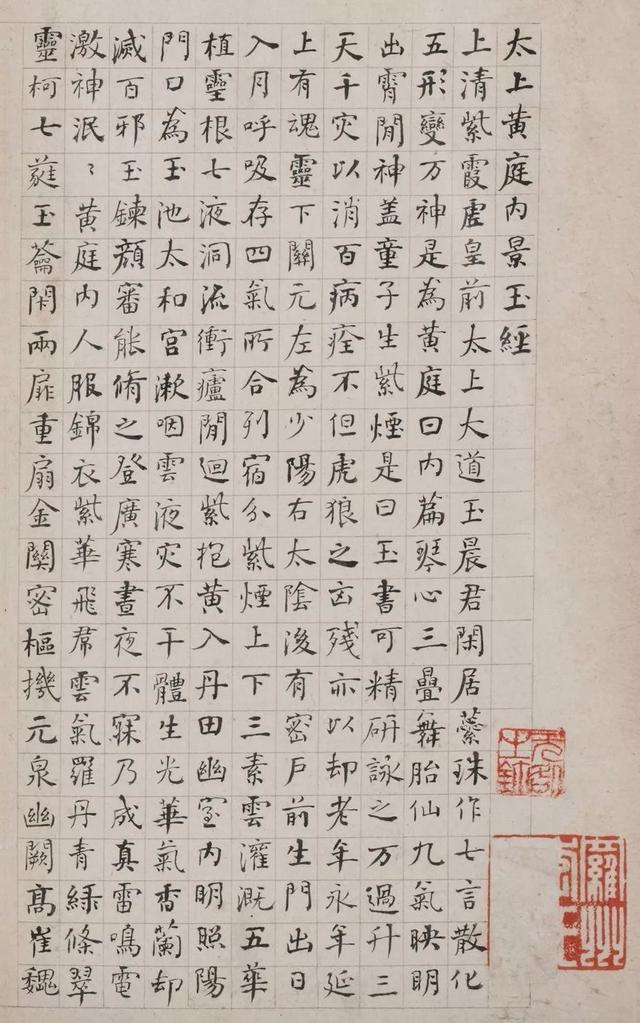 太上黃庭內景玉經
上清紫霞虛皇前太上大道玉晨君閑居蘂珠作七言散化
五形變万神是為黃庭曰內篇琴心三疊舞胎仙九氣映明
出霄間神盖童子生紫煙是曰玉書可精研詠之万過升三
天千灾以消百病痊不但虎狼之凶殘亦以却老年永年延
上有魂靈下關元左為少陽右太陰後有密戶前生門出日
入月呼吸存四氣所合列宿分紫煙上下三素雲灌溉五華
植靈根七液洞流衝廬間迴紫抱黃入丹田幽室內明照陽
門口為玉池太和宮漱咽雲液灾不干體生光華氣香蘭却
滅百邪玉鍊顏審能脩之登廣寒晝夜不寐乃成真雷鳴電
激神泯〻黃庭內人服錦衣紫華飛帬雲氣羅丹青綠條翠
靈柯七蕤玉籥閑兩扉重扇金關密樞機元泉幽闕高崔巍